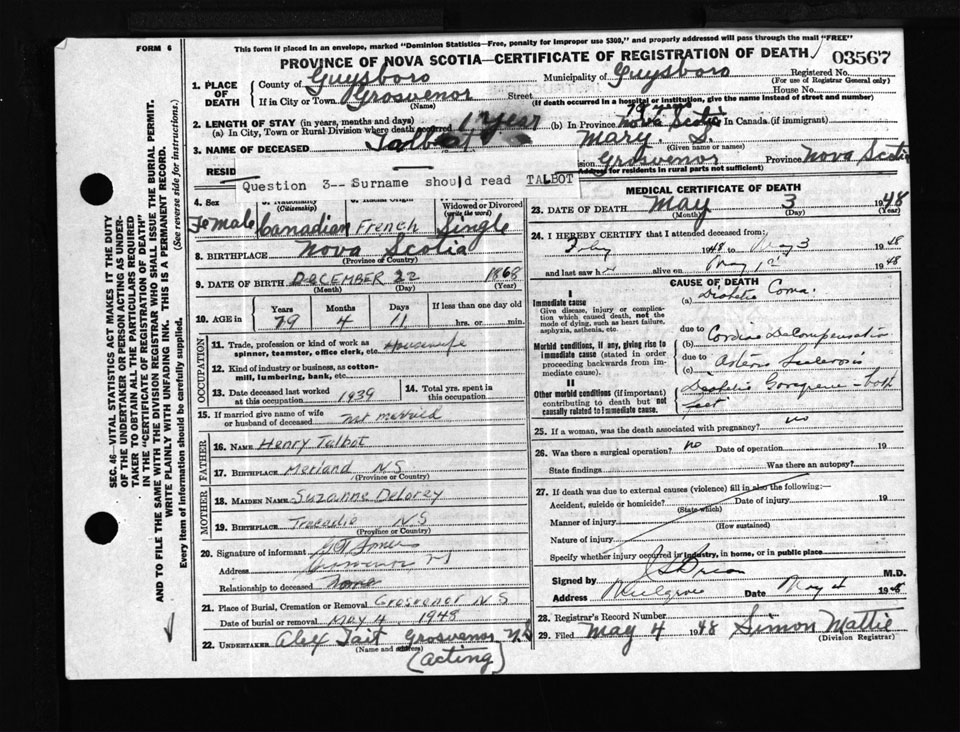 FORM 6
This form if placed in an envelope, marked "Dominion Statistics—Free, penalty for improper use $300," and properly addressed will pass through the mail "FREE"
PROVINCE OF NOVA SCOTIA—CERTIFICATE OF REGISTRATION OF DEATH
03567
Registered No.
(For use of Registrar General only)
1. PLACE OF DEATH
County of Guysboro Municipality of Guysboro
If in City or Town Grosvenor Street House No.
(Name) (If death occurred in a hospital or institution, give the name instead of street and number)
2. LENGTH OF STAY (in years, months and days)
(a) In City, Town or Rural Division where death occurred 1 year (b) In Province Nova Scotia In Canada (if immigrant)
3. NAME OF DECEASED Talbot Mary. S.
(Given name or names)
RESID Grosvenor Province Nova Scotia
(Address for residents in rural parts not sufficient)
Question 3-- Surname should read TALBOT
4. Sex
(Citizenship) Widowed or Divorced (write the word)
Female Canadian French Single
8. BIRTHPLACE Nova Scotia
(Province or Country)
9. DATE OF BIRTH DECEMBER 22 1868
(Month) (Day) (Year)
10. AGE in Years Months Days If less than one day old
79 4 11 hrs. or min.
OCCUPATION
11. Trade, profession or kind of work as spinner, teamster, office clerk, etc. Housewife
12. Kind of industry or business, as cotton-mill, lumbering, bank, etc.
13. Date deceased last worked at this occupation 1939
14. Total yrs. spent in this occupation
15. If married give name of wife or husband of deceased not married
FATHER
16. NAME Henry Talbot
17. BIRTHPLACE Merland N S
(Province or Country)
MOTHER
18. MAIDEN NAME Suzanne Delorey
19. BIRTHPLACE Tracadie N S
(Province or Country)
20. Signature of informant
Address Grosvenor N S
Relationship to deceased None
21. Place of Burial, Cremation or Removal Grosvenor N S
Date of burial or removal May 4, 1948
22. UNDERTAKER Alex Tait Grosvenor N.S
(Name and address)
(acting)
MEDICAL CERTIFICATE OF DEATH
23. DATE OF DEATH May 3 1948
(Month) (Day) (Year)
24. I HEREBY CERTIFY that I attended deceased from:
1948 to May 3 1948
and last saw h alive on May 1948
CAUSE OF DEATH
I
Immediate cause
Give disease, injury or complication which caused death, not the mode of dying, such as heart failure, asphyxia, asthenia, etc.
(a) Diabetic Coma.
due to
Morbid conditions, if any, giving rise to immediate cause (stated in order proceeding backwards from immediate cause).
(b) Cardiac Decompensation
due to
(c) Arterio Sclerosis
II
Other morbid conditions (if important) contributing to death but not causally related to immediate cause.
Diabetic Gangrene - both feet
25. If a woman, was the death associated with pregnancy? no
26. Was there a surgical operation? no Date of operation 19
State findings Was there an autopsy?
27. If death was due to external causes (violence) fill in also the following:—
Accident, suicide or homicide? Date of injury 19
(State which)
Manner of injury
(How sustained)
Nature of injury
Specify whether injury occurred in industry, in home, or in public place
Signed by M.D.
Address Mulgrave Date May 1948
28. Registrar's Record Number
29. Filed May 4 1948 Simon Mattie
(Division Registrar)
SEC. 46—VITAL STATISTICS ACT MAKES IT THE DUTY
OF THE UNDERTAKER OR PERSON ACTING AS UNDER-
TAKER TO OBTAIN ALL THE PARTICULARS REQUIRED
IN THE "CERTIFICATE OF REGISTRATION OF DEATH"
AND TO FILE THE SAME WITH THE DIVISION REGISTRAR WHO SHALL ISSUE THE BURIAL PERMIT.
WRITE PLAINLY WITH UNFADING INK. THIS IS A PERMANENT RECORD.
Every item of information should be carefully supplied. (See reverse side for instructions.)